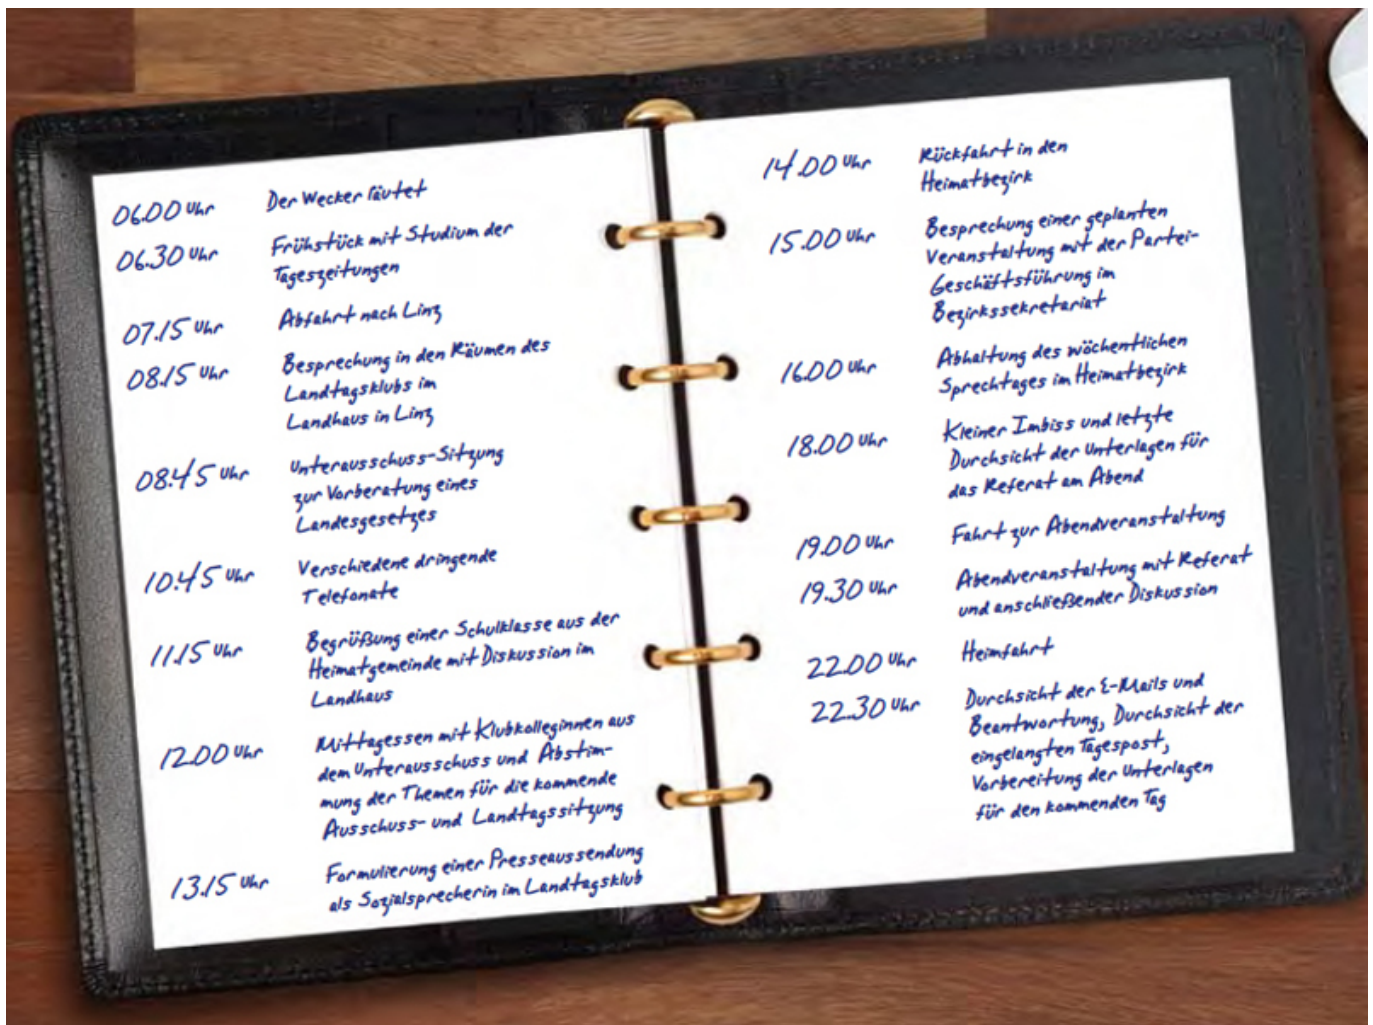 06.00 Uhr Der Wecker läutet
06.30 Uhr Frühstück mit Studium der
Tageszeitungen
07.15 Uhr Abfahrt nach Linz
08.15 Uhr Besprechung in den Räumen des
Landtagsklubs im
Landhaus in Linz
08.45 Uhr Unterausschuss-Sitzung
zur Vorberatung eines
Landesgesetzes
10.45 Uhr Verschiedene dringende
Telefonate
11.15 Uhr Begrüßung einer Schulklasse aus der
Heimatgemeinde mit Diskussion im
Landhaus
12.00 Uhr Mittagessen mit Klubkolleginnen aus
dem Unterausschuss und Abstim-
mung der Themen für die kommende
Ausschuss- und Landtagssitzung
13.15 Uhr Formulierung einer Presseaussendung
als Sozialsprecherin im Landtagsklub
14.00 Uhr Rückfahrt in den
Heimatbezirk
15.00 Uhr Besprechung einer geplanten
Veranstaltung mit der Partei-
Geschäftsführung im
Bezirkssekretariat
16.00 Uhr Abhaltung des wöchentlichen
Sprechtages im Heimatbezirk
18.00 Uhr Kleiner Imbiss und letzte
Durchsicht der Unterlagen für
das Referat am Abend
19.00 Uhr Fahrt zur Abendveranstaltung
19.30 Uhr Abendveranstaltung mit Referat
und anschließender Diskussion
22.00 Uhr Heimfahrt
22.30 Uhr Durchsicht der E-Mails und
Beantwortung, Durchsicht der
eingelangten Tagespost,
Vorbereitung der Unterlagen
für den kommenden Tag